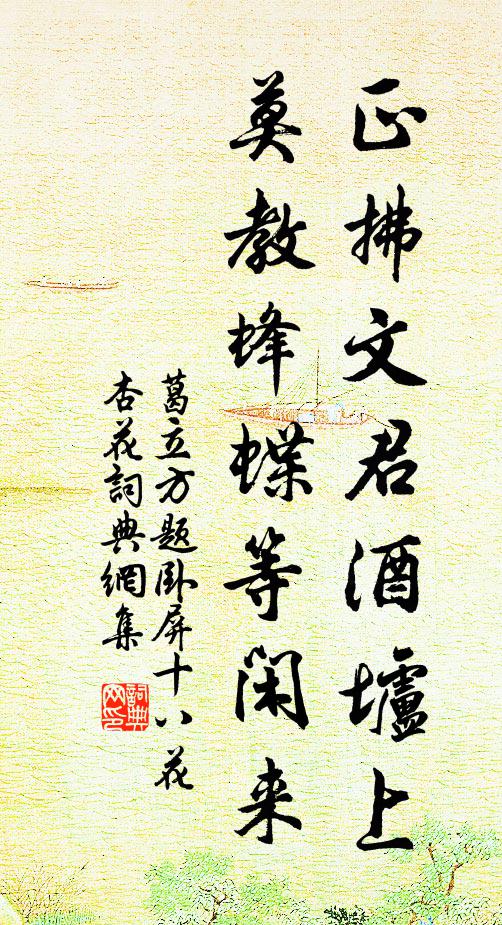 正拂文君酒壚上
莫教蜂蝶等闲来
葛立方题卧屏十八花
杏花詞典網集
詞典
网印